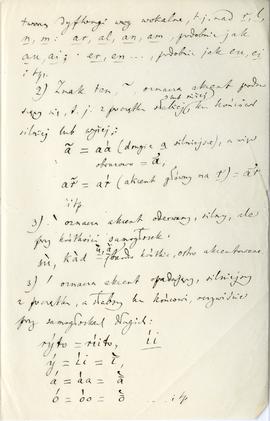 tworzą dyftongi wraz wokalne, t. j. nad r, l,
n, m: ar, al, an, am, podobnie jak
au, ai; er, en ..., podobnie jak eu, ei
i tp.
2) Znak ten, ~, oznacza akcent podno-
szący się, t. j. z początku słabiej, ku końcowi
silniej lub wyżej;
ã = aá (drugie a silniejsze), a więc
obrazowo = a,
ar̃ = aŕ (akcent główny na r) = ar
itp
3) ` oznacza akcent oderwany, silny, ale
przy krótkości samogłosek:
sù, kàd = bardzo krótkie, ostro akcentowane.
3) ´ oznacza akcent opadający, silniejszy
z początku, a słabszy ku końcowi, oczywiście
przy samogłoskach długich:
rýto = ríito, íi
ý = íi = ī,
á = áa = ā
ó = óo = ō ... itp